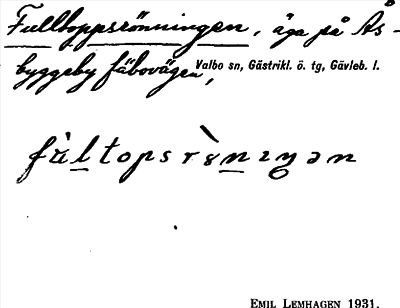 Fulltoppsrönningen, äga på Ås-
byggeby fäbovägen, Valbo sn, Gästrikl. ö. tg, Gävleb. l.
fùltopsrònıŋən
EMIL LEMHAGEN 1931.